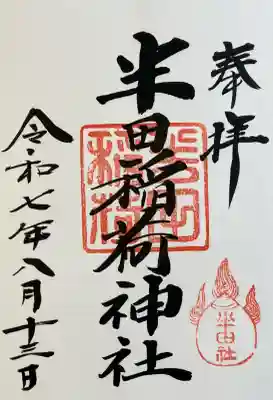 奉拝
半田稲荷神社
令和七年八月十三日
半田社